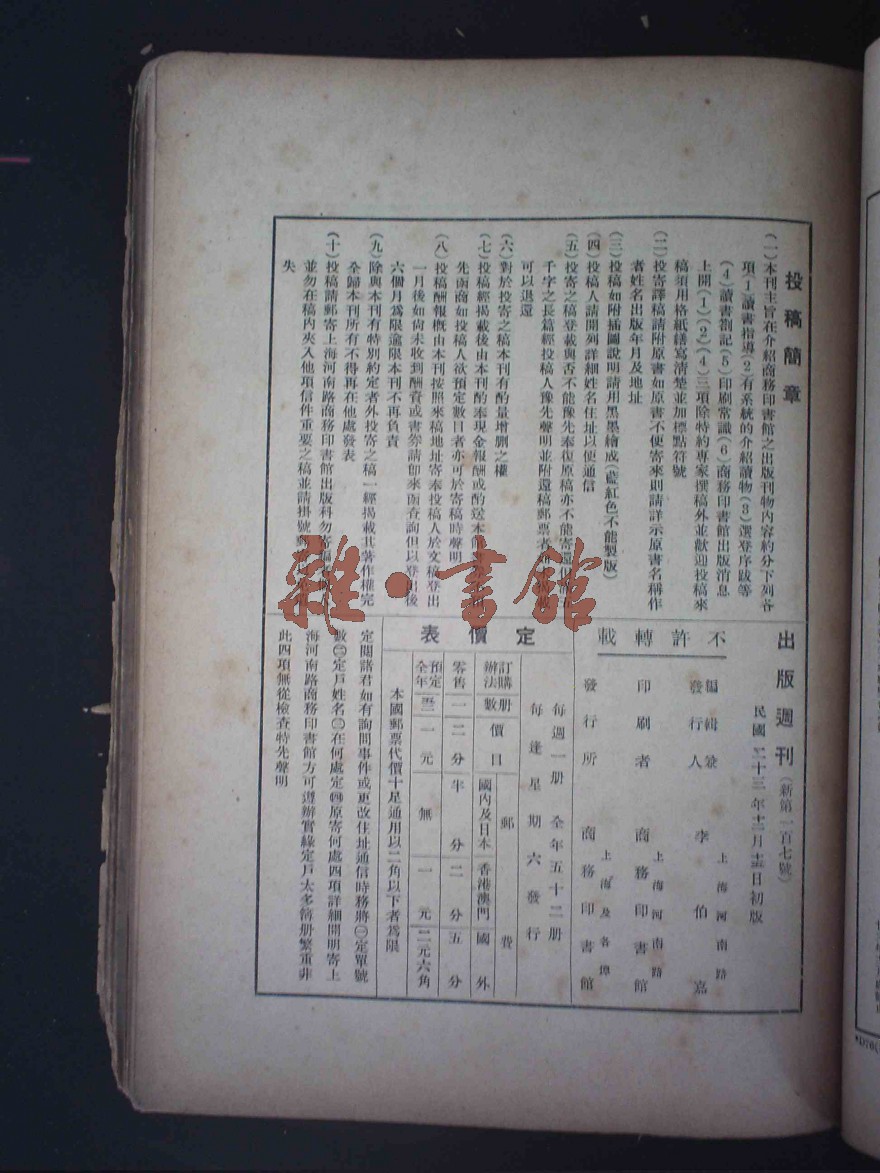 投稿簡章
(一)本刊主旨在介紹商務印書館之出版刊物內容約分下列各
項(1)讀書指導(2)有系統的介紹讀物(3)選登序跋等
(4)讀書劄記(5)印刷常識(6)商務印書館出版消息
上開(1)(2)(4)三項除特約專家撰稿外並歡迎投稿來
稿須用格紙繕寫清楚並加標點符號
(二)投寄譯稿請附原書如原書不便寄來則請詳示原書名稱作
者姓名出版年月及地址
(三)投稿如附插圖說明請用黑墨繪成(藍紅色不能製版)
(四)投稿人請開列詳細姓名住址以便通信
(五)投寄之稿登載與否不能豫先奉復原稿亦不能寄還但
千字之長篇經投稿人豫先聲明並附還稿郵票者
可以退還
(六)對於投寄之稿本刊有酌量增刪之權
(七)投稿經揭載後由本刊酌奉現金報酬或酌送本館
先函商如投稿人欲預定數目者亦可於寄稿時聲明
(八)投稿酬報概由本刊按照來稿地址寄奉投稿人於文稿登出
一月後如尚未收到酬資或書券請卽來函查詢但以登出後
六個月爲限逾限本刊不再負責
(九)除與本刊有特別約定者外投寄之稿一經揭載其著作權完
全歸本刊所有不得再在他處發表
(十)投稿請郵寄上海河南路商務印書館出版科勿寄
並勿在稿內夾入他項信件重要之稿並請掛號
失
雜·書館
出版週刊(新第一百七號)
民國二十三年十二月十五日初版
不許轉載
編輯兼發行人 上海河南路 李伯嘉
印刷者 上海河南路 商務印書館
發行所 上海及各埠 商務印書館
定價表
每週一册 全年五十二册
每逢星期六發行
訂購辦法 册數 價目 郵費
國內及日本 香港澳門 國外
零售 一 二分 半分 二分 五分
預定全年 五二 一元 無 一元 二元六角
本國郵票代價十足通用以二角以下者爲限
定閱諸君如有詢問事件或更改住址通信時務將㊀定單號
數㊁定戶姓名㊂在何處定㊃原寄何處四項詳細開明寄上
海河南路商務印書館方可遵辦實緣定戶太多簡册繁重非
此四項無從檢查特先聲明